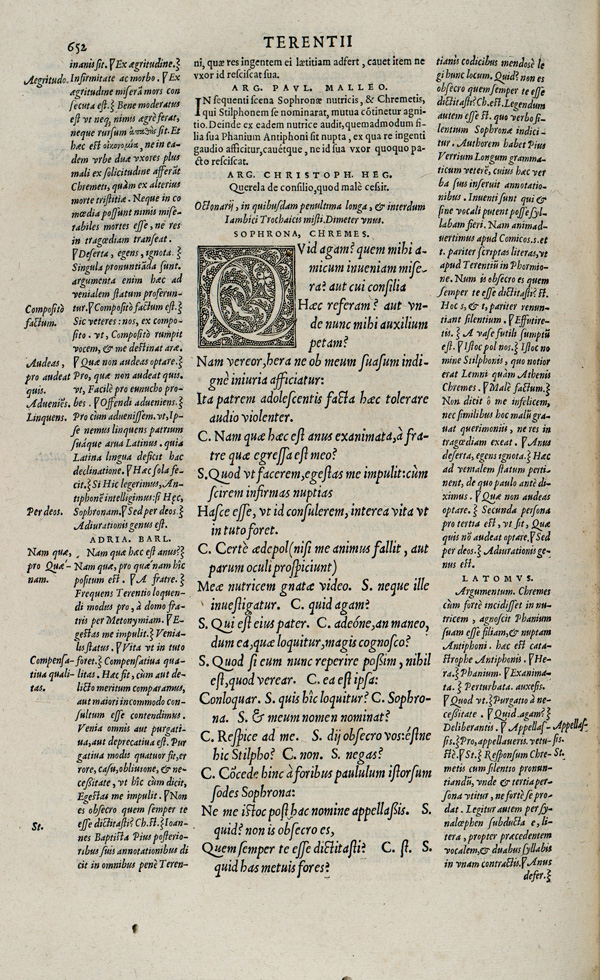 652
TERENTII
inanis sit. ꝟEx ægritudine.
Ægritudo. Infirmitate ac morbo. ꝟEx
ægritudine miserā mors con
secuta est. Bene moderatus
est vt neq; nimis ægrè ferat,
neque rursum sit. Et
hæc est οἰκονομία, ne in ea-
dem vrbe duæ vxores plus
mali ex solicitudine afferāt
Chremeti, quàm ex alterius
morte tristitiæ. Neque in co
mœdia possunt nimis mise-
rabiles mortes esse, ne res
in tragœdiam transeat.
ꝟDeserta, egens, ignota.
Singula pronuntiāda sunt.
argumenta enim hæc ad
venialem statum proferun-
Compositò tur. ꝟCompositò factum est.
factum. Sic veteres: nos, ex compo-
sito. vt, Compositò rumpit
vocem, & me destinat aræ.
Audeas, ꝟQuæ non audeas optare.
pro audeat Pro, quæ non audeat quis.
quis. vt, Facilè pro eunucho pro-
Adueniēs. bes. ꝟOffendi adueniens.
Linquens. Pro cùm aduenissem. vt, Ip-
se nemus linquens patrum
suáque arua Latinus. quia
Latina lingua deficit hac
declinatione. ꝟHæc sola fe-
cit. Si Hic legerimus, An-
tiphonē intelligimus: si Hęc,
Per deos. Sophronam. ꝟSed per deos.
Adiurationis genus est.
ADRIA. BARL.
Nam quæ, Nam quæ hæc est anus?
pro Quæ- Nam quæ, pro quænam hîc
nam. positum est. ꝟA fratre.
Frequens Terentio loquen-
di modus pro, à domo fra-
tris per Metonymiam. ꝟE-
gestas me impulit. ꝟVenia-
lis status. ꝟVita vt in tuto
Compensa- foret. Compensatiua qua-
tiua quali- litas. Hæc sit, cùm aut de-
tas. licto meritum comparamus,
aut maiori incommodo con-
sultum esse contendimus.
Venia omnis aut purgati-
ua, aut deprecatiua est. Pur
gatiua modis quatuor sit, er
rore, casu, obliuione, & ne-
cessitate, vt hîc cùm dicit,
Egestas me impulit. ꝟNon
es obsecro quem semper te
esse dictitasti? Ch. St. Ioan-
St. nes Baptista Pius posterio-
ribus suis annotationibus di
cit in omnibus penè Teren-
ni, quæ res ingentem ei lætitiam adfert, cauet item ne
vxor id resciscat sua.
ARG. PAVL. MALLEO.
IN sequenti scena Sophronæ nutricis, & Chremetis,
qui Stilphonem se nominarat, mutua cōtinetur agni-
tio. Deinde ex eadem nutrice audit, quemadmodum fi-
lia sua Phanium Antiphoni sit nupta, ex qua re ingenti
gaudio afficitur, cauétque, ne id sua vxor quoquo pa-
cto resciscat.
ARG. CHRISTOPH. HEG.
Querela de consilio, quod malè cessit.
Octonarij, in quibusdam penultima longa, & interdum
Iambici Trochaicis misti. Dimeter vnus.
SOPHRONA, CHREMES.
QVid agam? quem mihi a-
micum inueniam mise-
ra? aut cui consilia
Hæc referam? aut vn-
de nunc mihi auxilium
petam?
Nam vereor, hera ne ob meum suasum indi-
gnè iniuria afficiatur:
Ita patrem adolescentis facta hæc tolerare
audio violenter.
C. Nam quæ hæc est anus exanimata, à fra-
tre quæ egressa est meo?
S. Quod vt facerem, egestas me impulit: cùm
scirem infirmas nuptias
Hasce esse, vt id consulerem, interea vita vt
in tuto foret.
C. Certè ædepol (nisi me animus fallit, aut
parum oculi prospiciunt)
Meæ nutricem gnatæ video. S. neque ille
inuestigatur. C. quid agam?
S. Qui est eius pater. C. adeóne, an maneo,
dum ea, quæ loquitur, magis cognosco?
S. Quod si eum nunc reperire possim, nihil
est, quod verear. C. ea est ipsa:
Conloquar. S. quis hîc loquitur? C. Sophro-
na. S. & meum nomen nominat?
C. Respice ad me. S. dij obsecro vos: éstne
hic Stilpho? C. non. S. negas?
C. Cōcede hinc à foribus paululum istorsum
sodes Sophrona:
Ne me istoc posthac nomine appellassis. S.
quid? non is obsecro es,
Quem semper te esse dictitasti? C. st. S.
quid has metuis fores?
tianis codicibus mendosè le
gi hunc locum. Quid? non es
obsecro quem semper te esse
dictitasti? Ch. st. Legendum
autem esse st. quo verbo si-
lentium Sophronæ indici-
tur. Authorem habet Pius
Verrium Longum gramma-
ticum veterē, cuius hæc ver
ba suis inseruit annotatio-
nibus. Inuenti sunt qui &
sine vocali putent posse syl-
labam fieri. Nam animad-
uertimus apud Comicos. s. et
t. pariter scriptas literas, vt
apud Terentiū in Phormio-
ne. Num is obsecro es quem
semper te esse dictitasti? st.
Hoc s, & t, pariter renun-
tiant silentium. ꝟEffutire-
tis. A vase futili sumptū
est. ꝟIstoc pol nos. Istoc no
mine Stilphonis, quo notior
erat Lemni quàm Athenis
Chremes. ꝟMalè factum.
Non dicit ô me infelicem,
nec similibus hoc malū gra-
uat querimoniis, ne res in
tragœdiam exeat. ꝟAnus
deserta, egens, ignota. Hæc
ad venialem statum perti-
nent, de quo paulo antè di-
ximus. ꝟQuæ non audeas
optare. Secunda persona
pro tertia est, vt sit, Quæ
quis nō audeat optare. ꝟSed
per deos. Adiurationis ge-
nus est.
LATOMVS.
Argumentum. Chremes
cùm fortè incidisset in nu-
tricem, agnoscit Phanium
suam esse filiam, & nuptam
Antiphoni. hæc est cata-
strophe Antiphonis. ꝟHe-
ra. Phanium. ꝟExanima-
ta. Perturbata. auxesis.
ꝟQuod vt. Purgatio à ne-
cessitate. ꝟQuid agam?
Deliberantis. ꝟAppellas- Appellas-
sis. Pro, appellaueris. vetu- sis.
stè. ꝟSt. Responsum Chre- St.
metis cum silentio pronun-
tiandū, vnde & tertia per-
sona vtitur, ne fortè se pro-
dat. Legitur autem per sy-
nalœphen subducta e, li-
tera, propter præcedentem
vocalem, & duabus syllabis
in vnam contractis. ꝟAnus
deser.